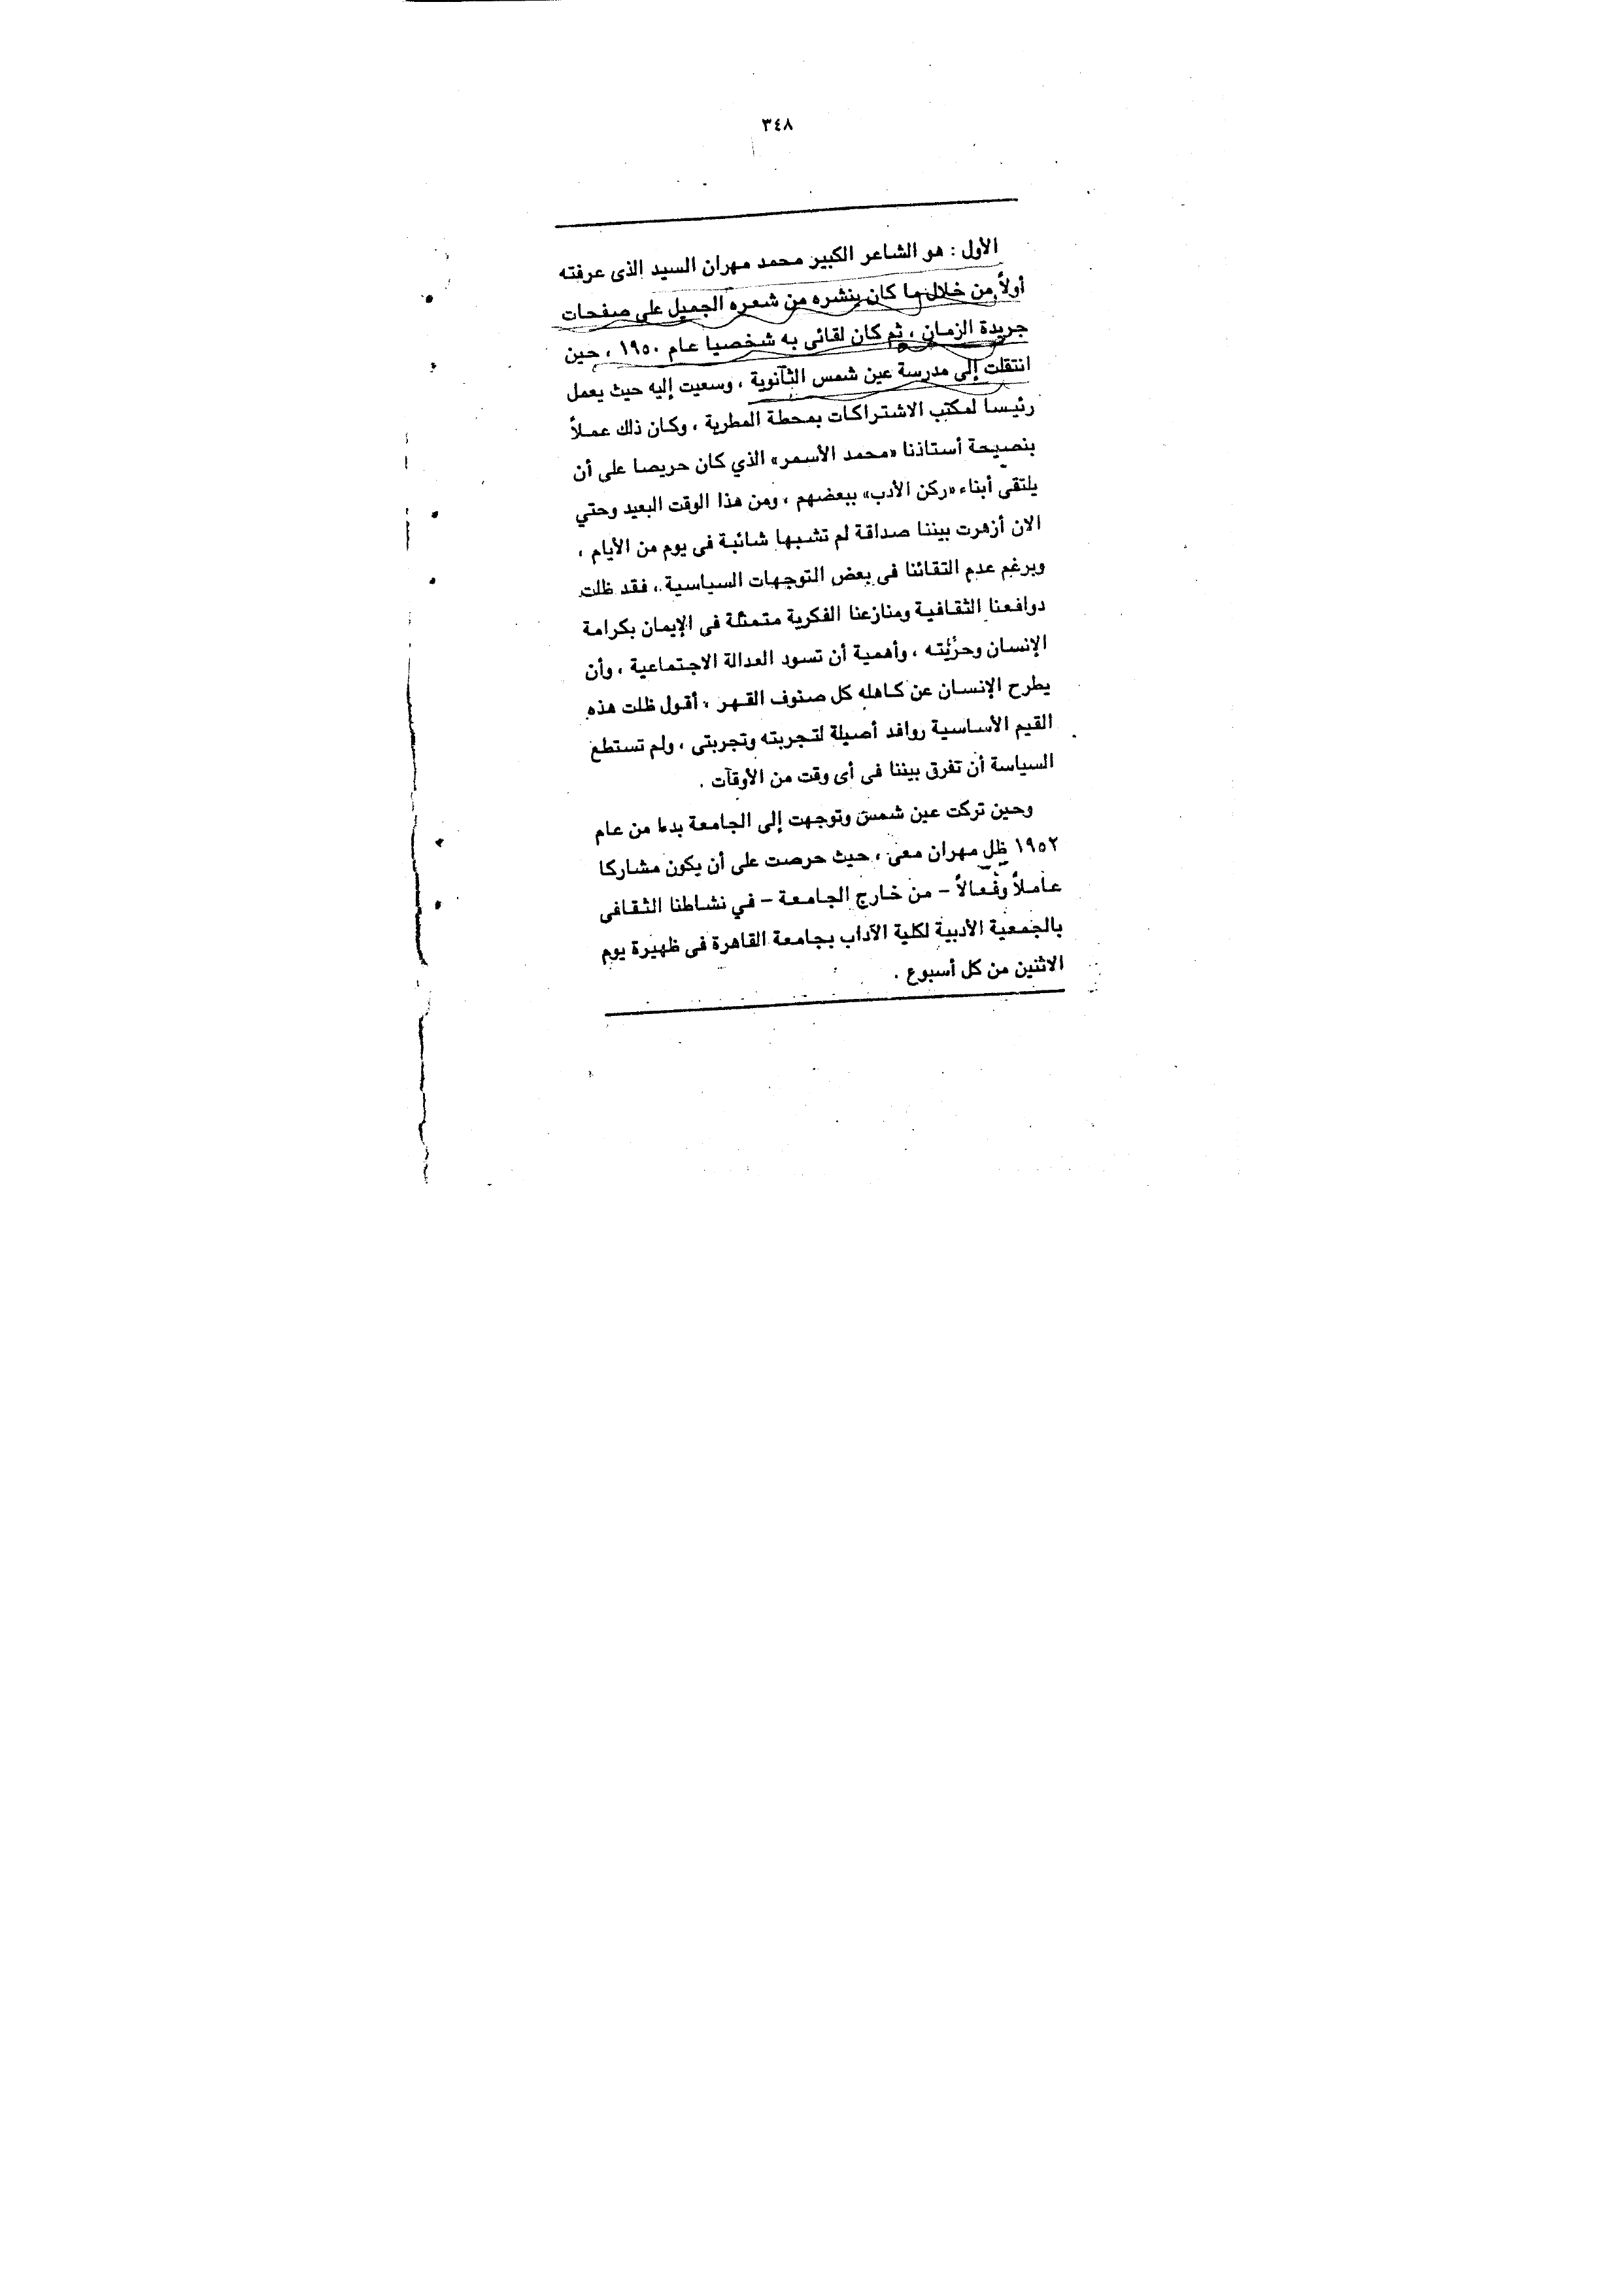 ٣٤٨
الأول : هو الشاعر الكبير محمد مهران السيد الذى عرفته
أولاً من خلال ما كان ينشره من شعره الجميل على صفحات
جريدة الزمان ، ثم كان لقائى به شخصيا عام ١٩٥٠ ، حين
انتقلت إلى مدرسة عين شمس الثانوية ، وسعيت إليه حيث يعمل
رئيسا لمكتب الاشتراكات بمحطة المطرية ، وكان ذلك عملاً
بنصيحة أستاذنا «محمد الأسمر» الذي كان حريصا على أن
يلتقى أبناء «ركن الأدب» ببعضهم ، ومن هذا الوقت البعيد وحتي
الان أزهرت بيننا صداقة لم تشبها شائبة فى يوم من الأيام ،
وبرغم عدم التقائنا فى بعض التوجهات السياسية ، فقد ظلت
دوافعنا الثقافية ومنازعنا الفكرية متمثلة فى الإيمان بكرامة
الإنسان وحريته ، وأهمية أن تسود العدالة الاجتماعية ، وأن
يطرح الإنسان عن كاهله كل صنوف القهر ، أقول ظلت هذه
القيم الأساسية روافد أصيلة لتجربته وتجربتى ، ولم تستطع
السياسة أن تفرق بيننا فى أى وقت من الأوقات .
وحين تركت عين شمس وتوجهت إلى الجامعة بدءا من عام
١٩٥٢ ظل مهران معى ، حيث حرصت على أن يكون مشاركا
عاملاً وفعالاً - من خارج الجامعة - في نشاطنا الثقافى
بالجمعية الأدبية لكلية الآداب بجامعة القاهرة فى ظهيرة يوم
الاثنين من كل أسبوع .